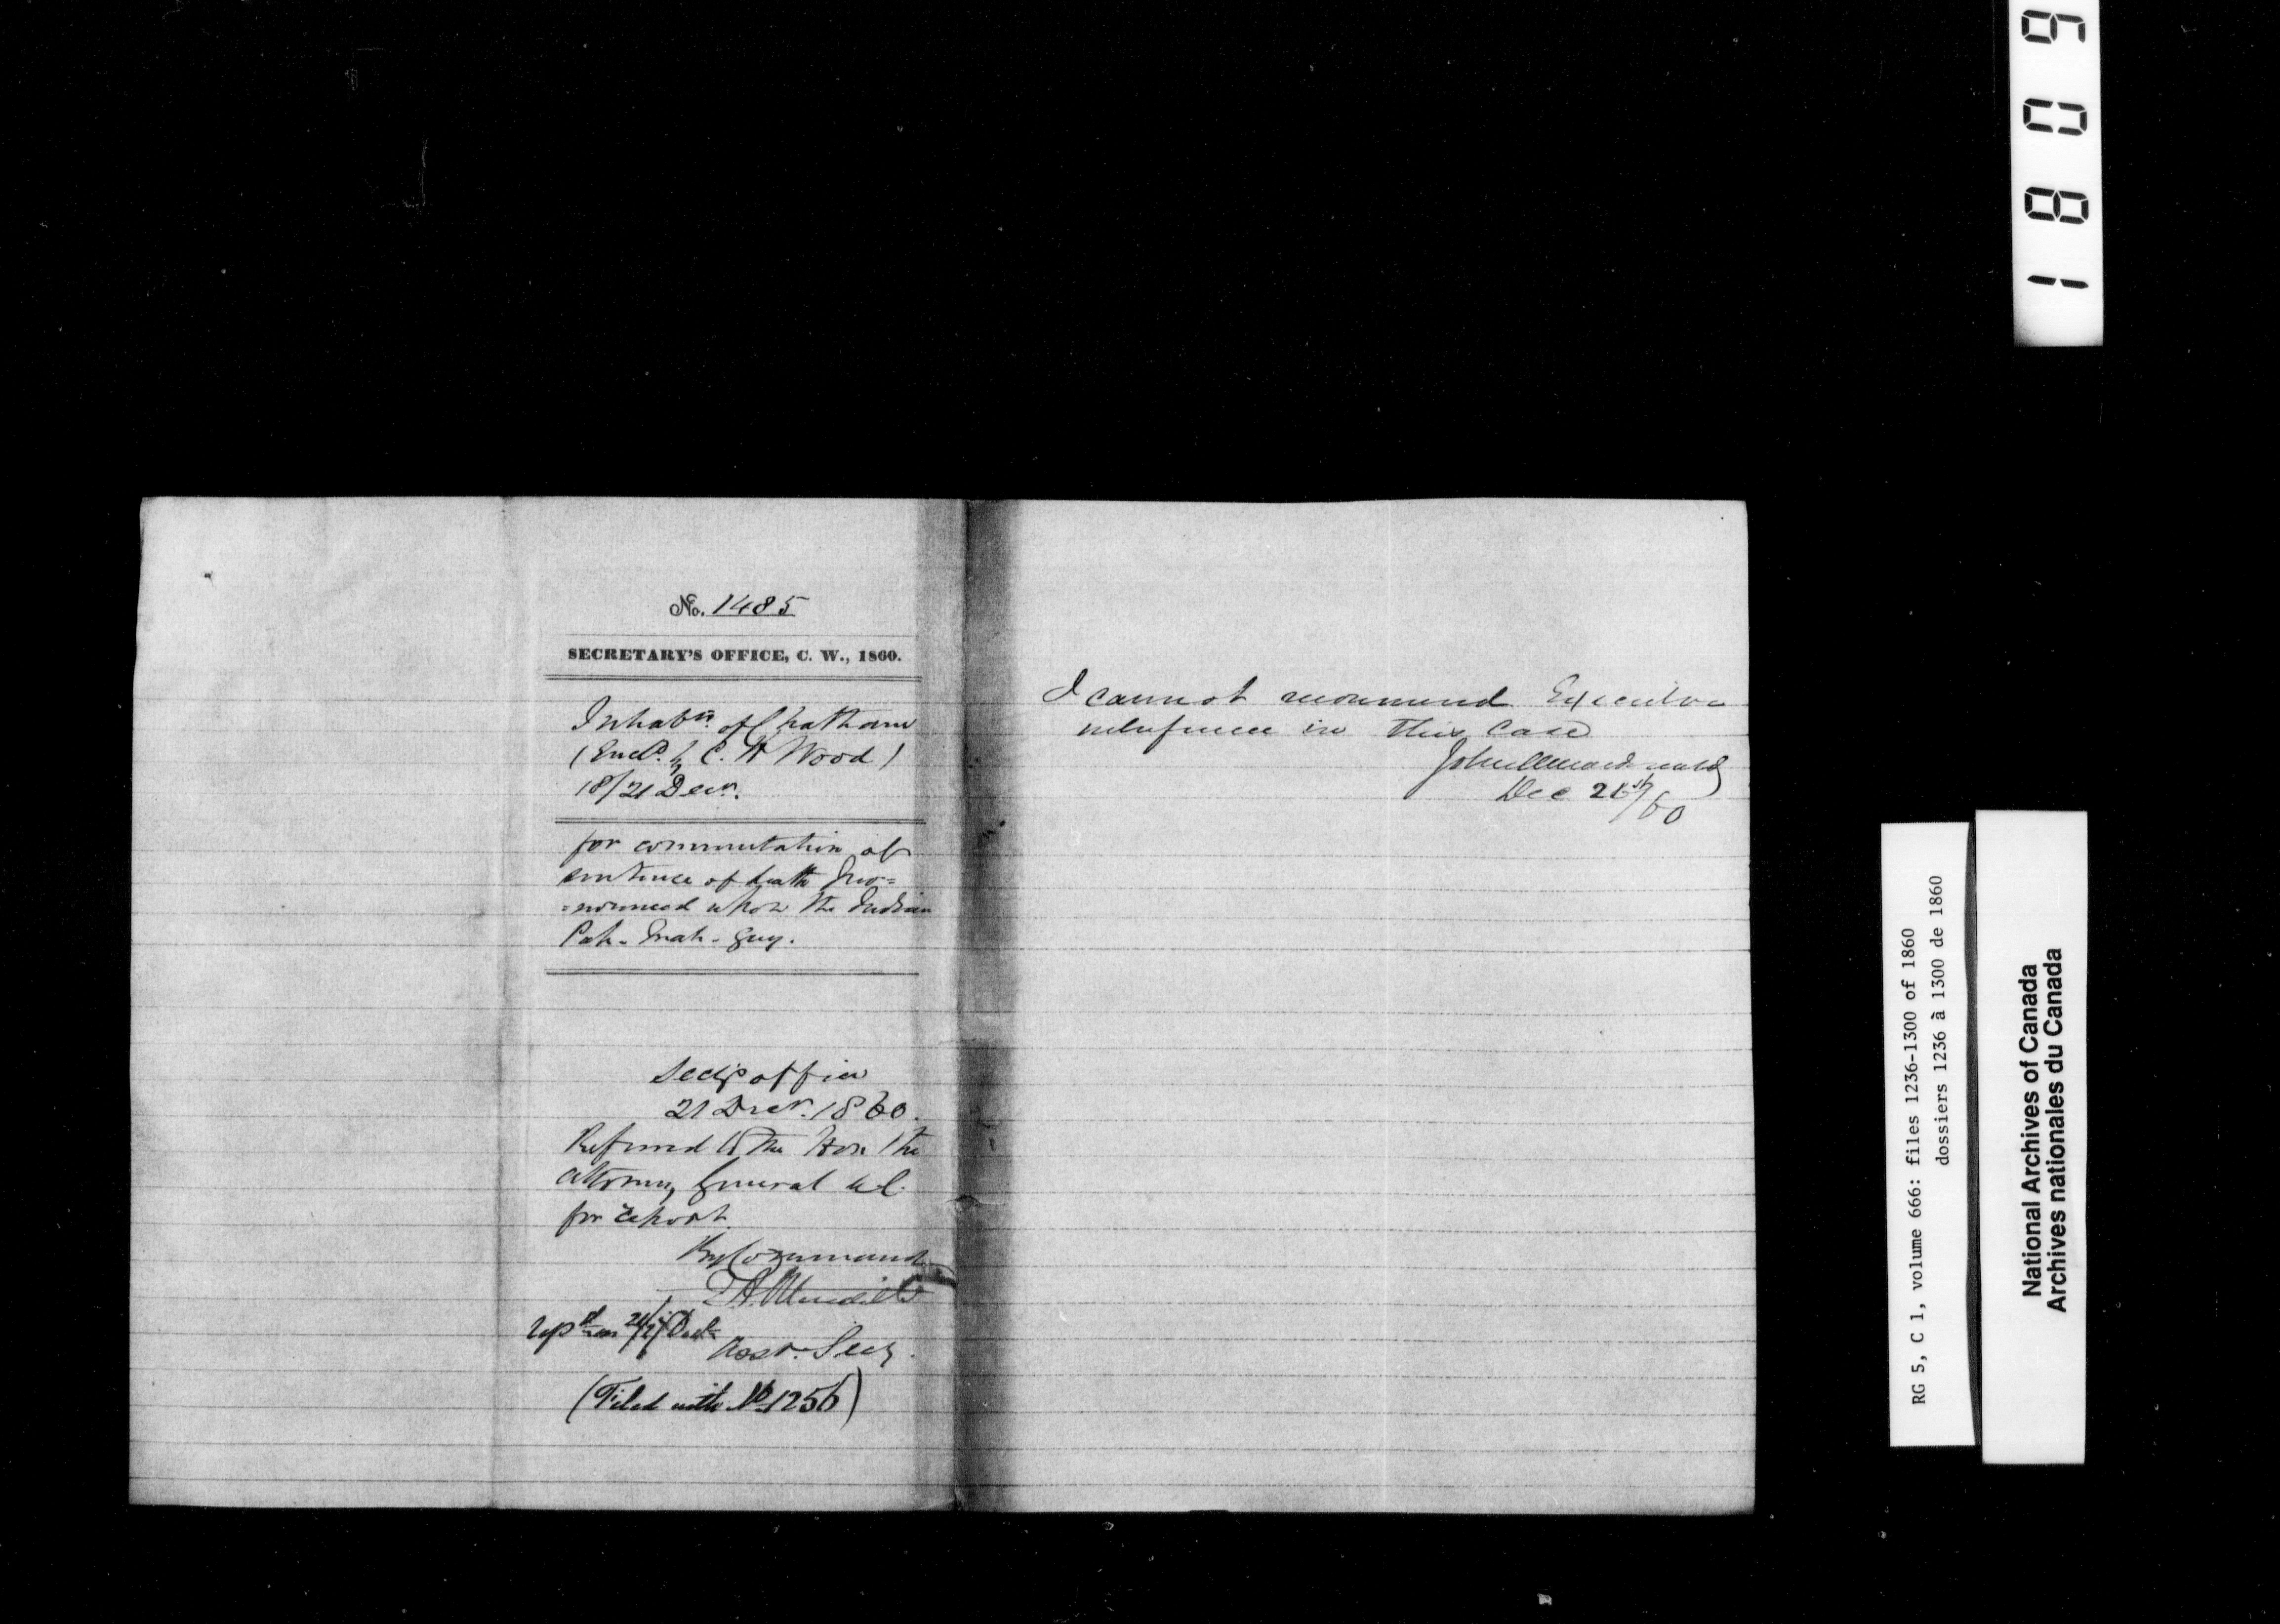 1809
No. 1485
SECRETARY'S OFFICE, C. W., 1860.
Inhabts. of Chatham
(Encd. by C. R Wood)
18/21 Decr.
for commutation of
sentence of death pro=
=nounced upon the Indian
Pah-mah-guy.
Secys office
21 Decr. 1860.
Referred to the Hon. the
Attorney General U.C.
for report.
By Command
Asst. Secy.
(Filed with No 1256)
I cannot recommend Executive
interference in this case
John A Macdonald
Dec 21st/60
RG 5, C 1, volume 666: files 1236-1300 of 1860
dossiers 1236 à 1300 de 1860
National Archives of Canada
Archives nationales du Canada